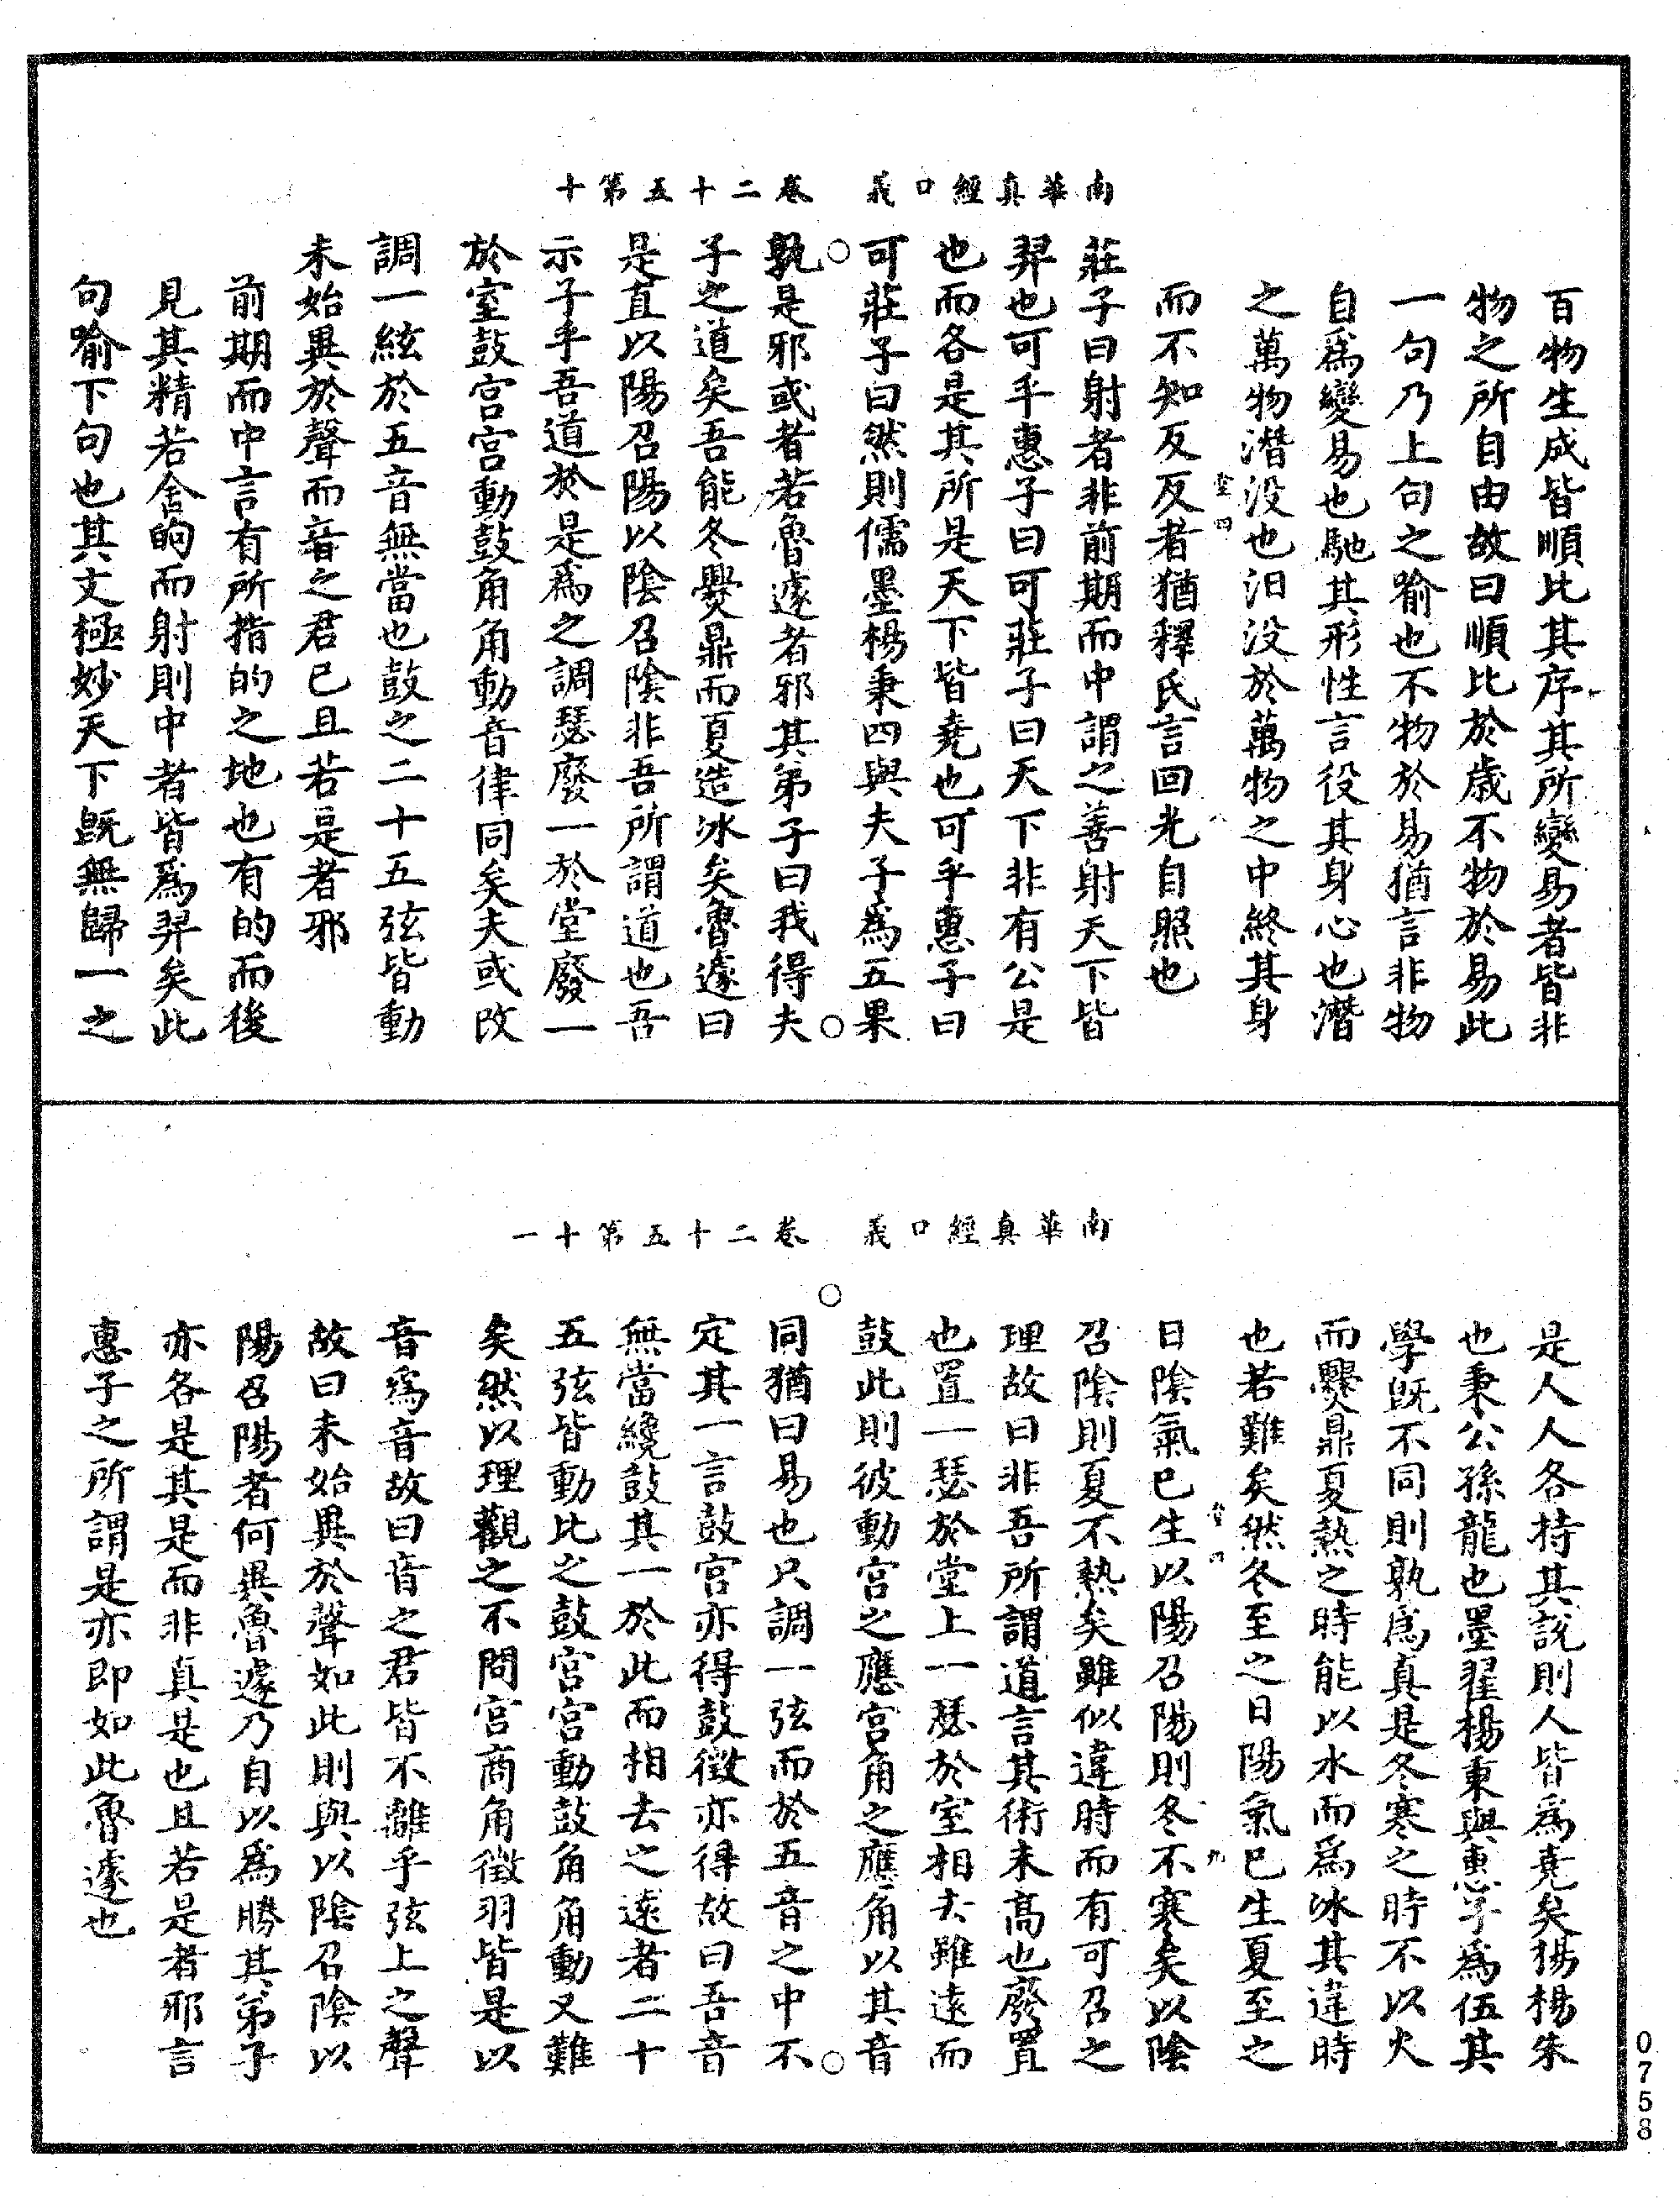 南華真經口義　卷二十五第十
百物生成皆順比其序其所變易者皆非
物之所自由故曰順比於歲不物於易此
一句乃上句之喻也不物於易猶言非物
自爲變易也馳其形性言役其身心也潛
之萬物潛没也汨没於萬物之中終其身
而不知反反者猶釋氏言回光自照也
莊子曰射者非前期而中謂之善射天下皆
羿也可乎惠子曰可莊子曰天下非有公是
也而各是其所是天下皆堯也可乎惠子曰
可莊子曰然則儒墨楊秉四與夫子為五果
孰是邪或者若魯遽者邪其弟子曰我得夫
子之道矣吾能冬爨鼎而夏造冰矣魯遽曰
是直以陽召陽以陰召陰非吾所謂道也吾
示子乎吾道於是爲之調瑟廢一於堂廢一
於室鼓宮宮動鼓角角動音律同矣夫或改
調一絃於五音無當也鼓之二十五弦皆動
未始異於聲而音之君已且若是者邪
前期而中言有所指的之地也有的而後
見其精若舍的而射則中者皆爲羿矣此
句喻下句也其文極妙天下既無歸一之
南華真經口義　卷二十五第十一
是人人各持其說則人皆爲堯矣楊楊朱
也秉公孫龍也墨翟楊秉與惠子爲伍其
學既不同則孰爲真是冬寒之時不以火
而爨鼎夏熱之時能以水而爲冰其違時
也若難矣然冬至之日陽氣已生夏至之
日陰氣已生以陽召陽則冬不寒矣以陰
召陰則夏不熱矣雖似違時而有可召之
理故曰非吾所謂道言其術未高也廢置
也置一瑟於堂上一瑟於室相去雖遠而
鼓此則彼動宮之應宮角之應角以其音
同猶曰易也只調一弦而於五音之中不
定其一言鼓宮亦得鼓徵亦得故曰吾音
無當纔鼓其一於此而相去之遠者二十
五弦皆動比之鼓宮宮動鼓角角動又難
矣然以理觀之不問宮商角徵羽皆是以
音爲音故曰音之君皆不離乎弦上之聲
故曰未始異於聲如此則與以陰召陰以
陽召陽者何異魯遽乃自以爲勝其弟子
亦各是其是而非真是也且若是者邪言
惠子之所謂是亦即如此魯遽也
0758